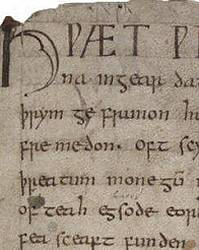 HǷÆT ǷE
na in gear da
þrym ge frunon hu
fremedon. oft scy
þreatum monegū
of teah egsode eorl
fea sceaft funden